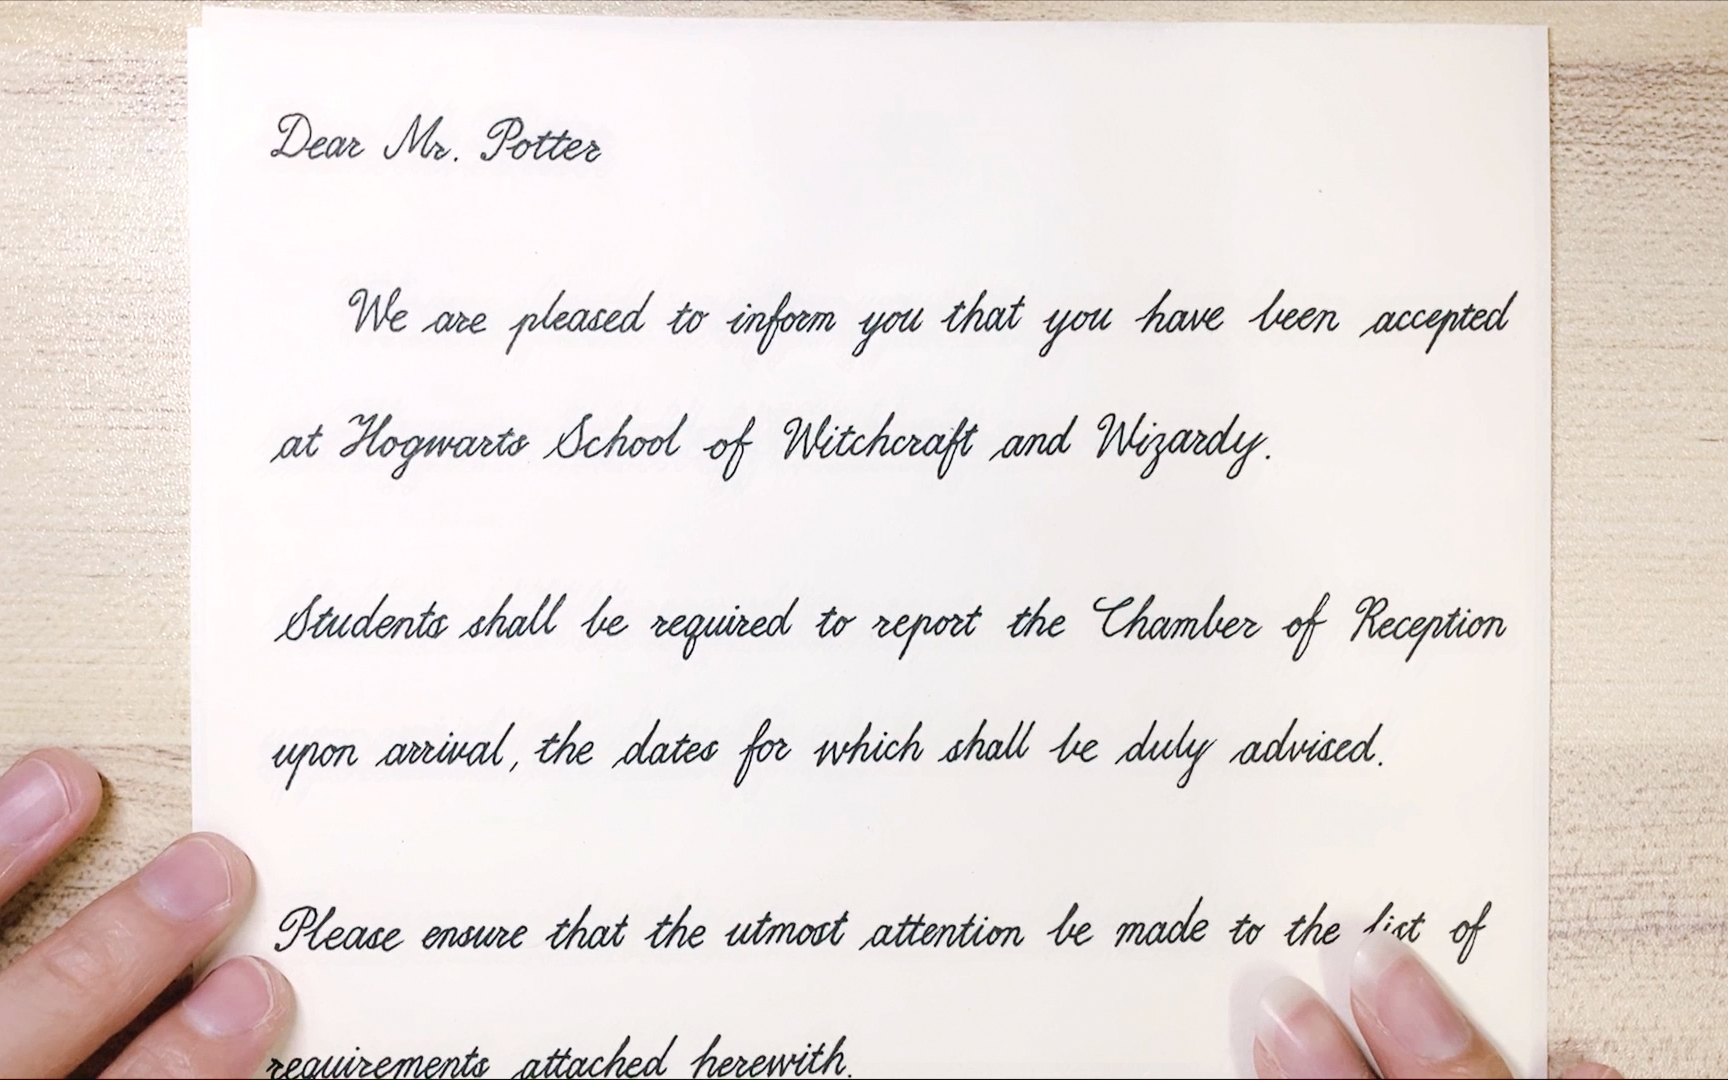 Dear Mr. Potter
We are pleased to inform you that you have been accepted
at Hogwarts School of Witchcraft and Wizardy.
Students shall be required to report the Chamber of Reception
upon arrival, the dates for which shall be duly advised.
Please ensure that the utmost attention be made to the list of
requirements attached herewith.